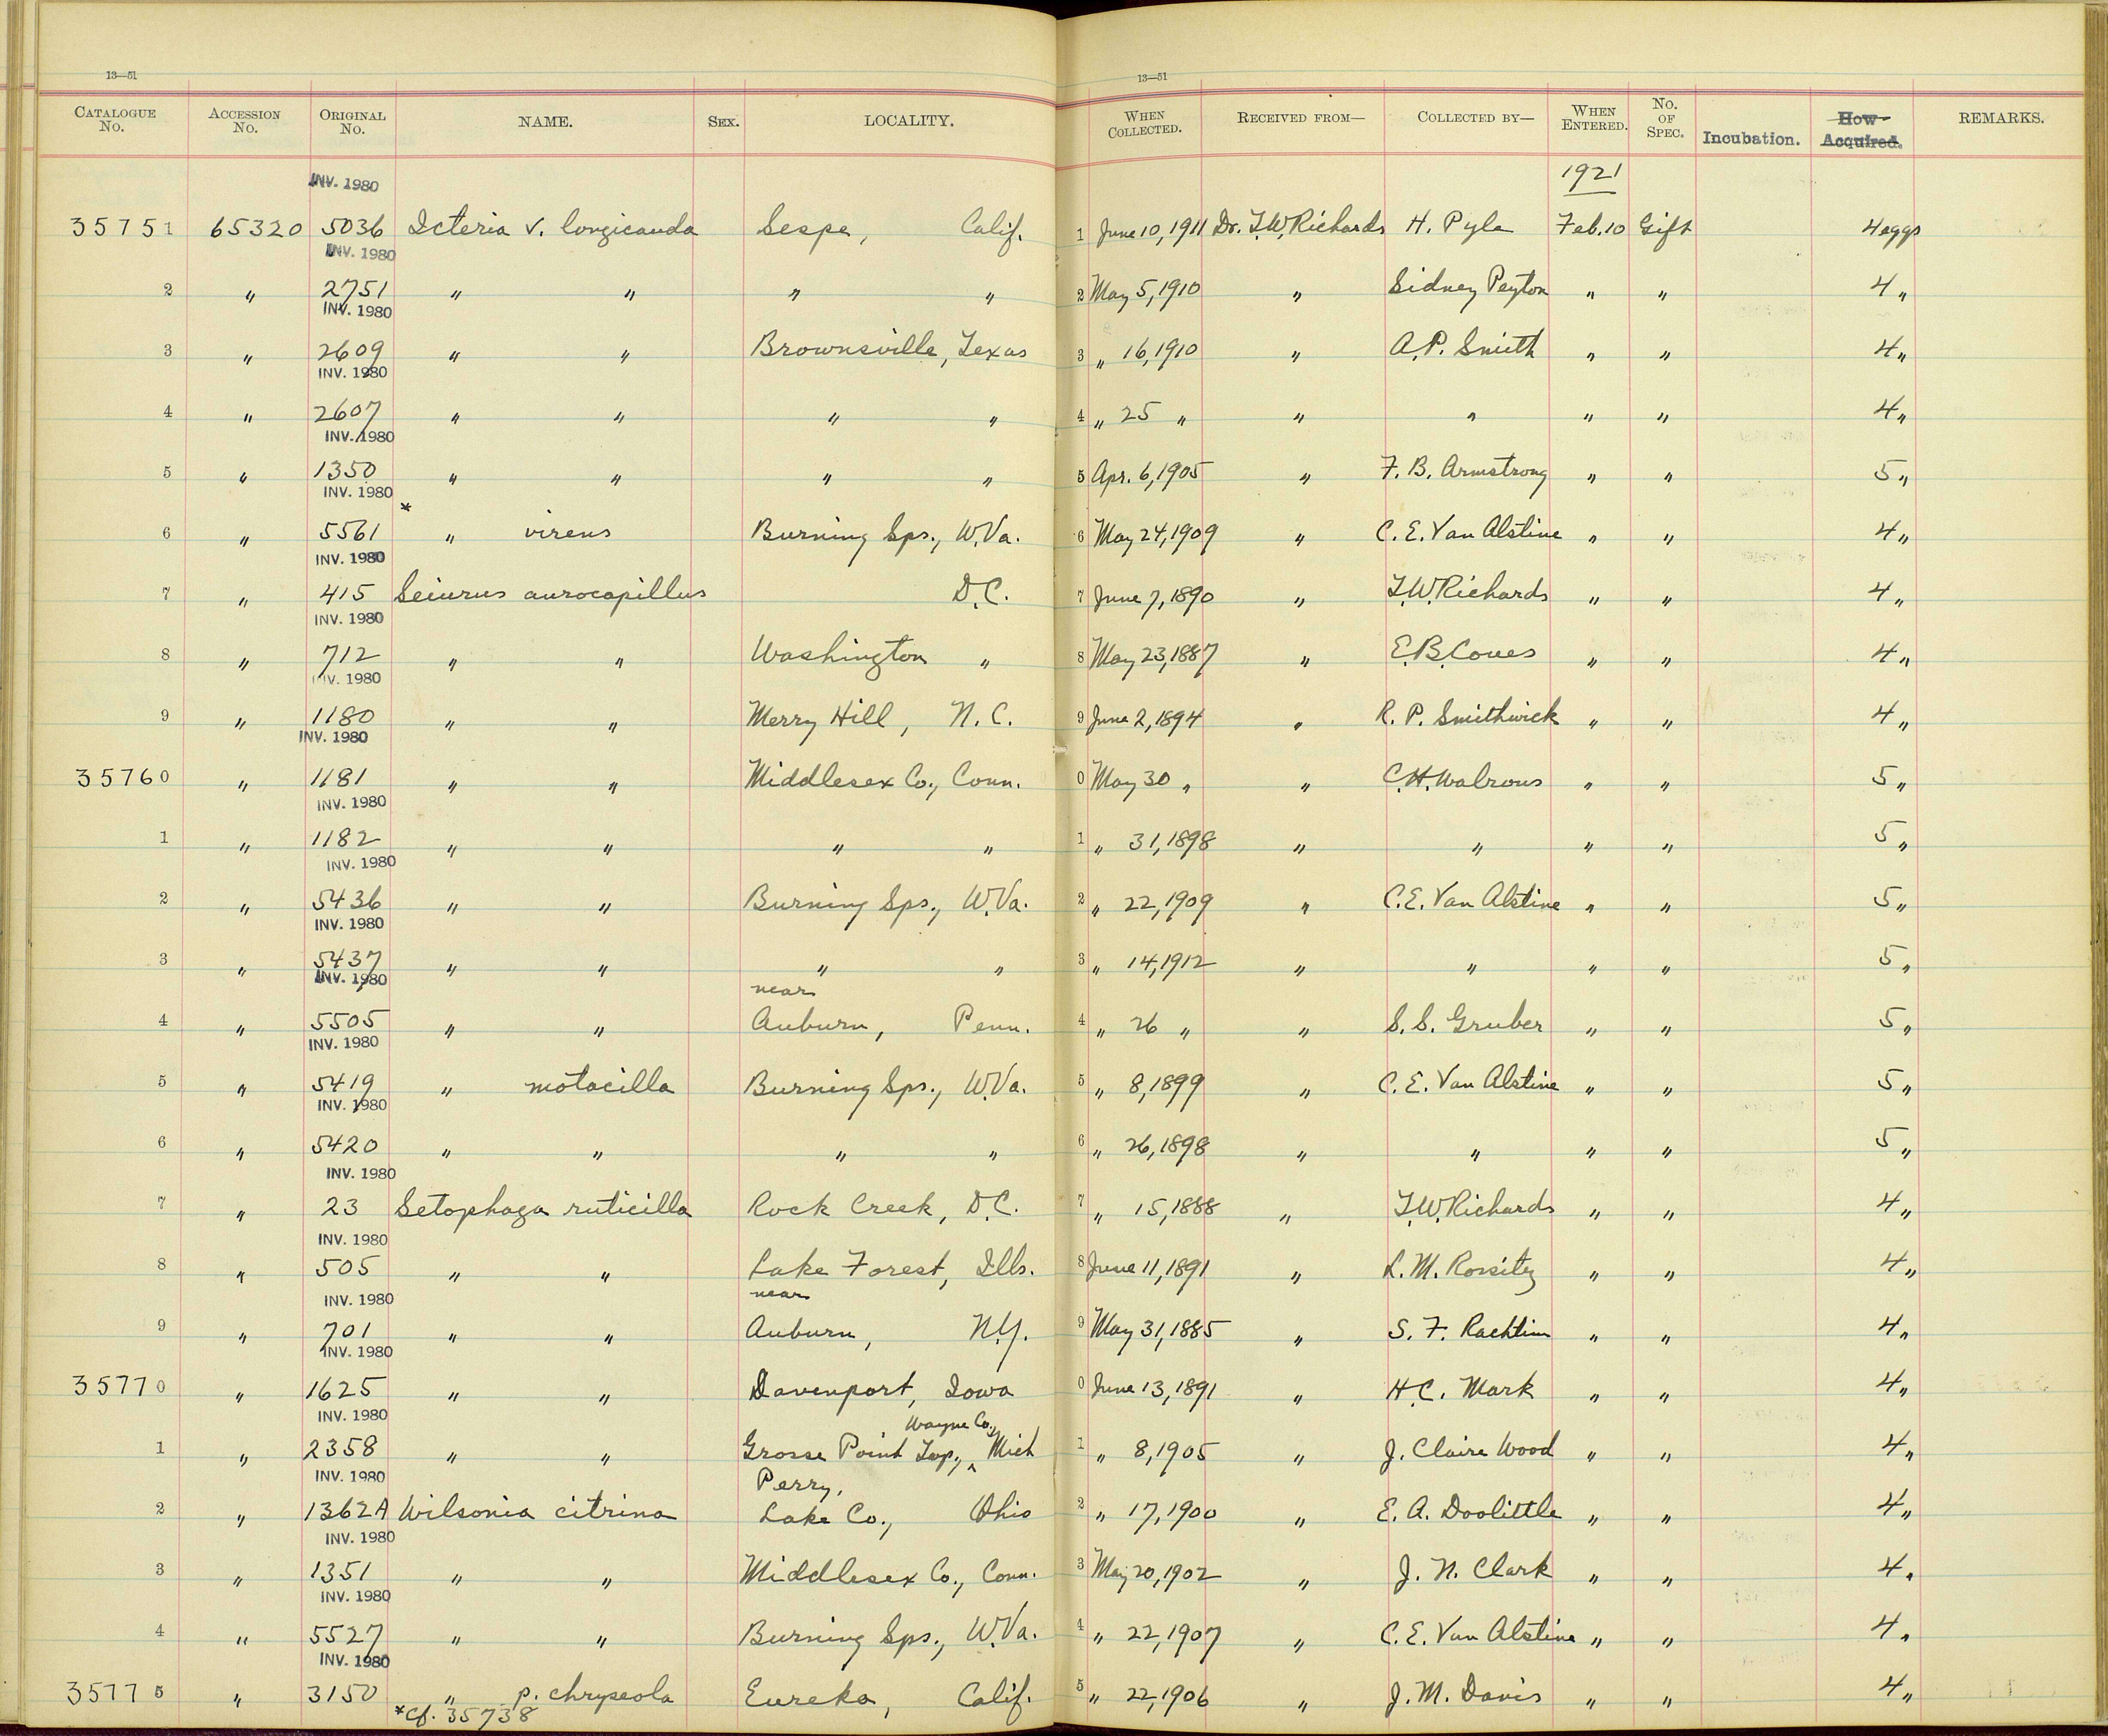 13—51
13—51
CATALOGUE No. ACCESSION No. ORIGINAL No. NAME. SEX. LOCALITY. WHEN COLLECTED. RECEIVED FROM— COLLECTED BY— WHEN ENTERED. No. OF SPEC. Incubation. How Acquired. REMARKS.
INV. 1980 1921
35751 65320 5036 Icteria v. longicauda Sespe, Calif. 1 June 10, 1911 Dr. T.W. Richards H. Pyle Feb. 10 Gift 4 eggs
INV. 1980
2 " 2751 " " " " 2 May 5, 1910 " Sidney Peyton " " 4 "
INV. 1980
3 " 2609 " " Brownsville, Texas 3 " 16, 1910 " A.P. Smith " " 4 "
INV. 1980
4 " 2607 " " " " 4 " 25 " " " " " 4 "
INV. 1980
5 " 1350 " " " " 5 Apr. 6, 1905 " F. B. Armstrong " " 5 "
INV. 1980 *
6 " 5561 " virens Burning Sps., W.Va. 6 May 24, 1909 " C. E. Van Alstine " " 4 "
INV. 1980
7 " 415 Seiurus aurocapillus D.C. 7 June 7, 1890 " T.W. Richards " " 4 "
INV. 1980
8 " 712 " " Washington " 8 May 23, 1887 " E.B. Coues " " 4 "
INV. 1980
9 " 1180 " " Merry Hill, N.C. 9 June 2, 1894 " R. P. Smithwick " " 4 "
INV. 1980
35760 " 1181 " " Middlesex Co., Conn. 0 May 30 " " C.H. " " 5 "
INV. 1980
1 " 1182 " " " " 1 " 31, 1898 " " " " 5 "
INV. 1980
2 " 5436 " " Burning Sps., W.Va. 2 " 22, 1909 " C.E. Van Alstine " " 5 "
INV. 1980
3 " 5437 " " " " 3 " 14, 1912 " " " " 5 "
INV. 1980 near
4 " 5505 " " Auburn, Penn. 4 " 26 " " S. S. Gruber " " 5 "
INV. 1980
5 " 5419 " motacilla Burning Sps., W.Va. 5 " 8, 1899 " C. E. Van Alstine " " 5 "
INV. 1980
6 " 5420 " " " " 6 " 26, 1898 " " " " 5 "
INV. 1980
7 " 23 Setophaga ruticilla Rock Creek, D.C. 7 " 15, 1888 " T.W. Richards " " 4 "
INV. 1980
8 " 505 " " Lake Forest, Ills. 8 June 11, 1891 " L. M. " " 4 "
INV. 1980 near
9 " 701 " " Auburn, N.Y. 9 May 31, 1885 " S. F. " " 4 "
INV. 1980
35770 " 1625 " " Davenport, Iowa 0 June 13, 1891 " H.C. Mark " " 4 "
INV. 1980 Wayne Co.,
1 " 2358 " " Grosse Point Twp., ^ Mich 1 " 8, 1905 " J. Claire Wood " " 4 "
INV. 1980 Perry,
2 " 1362A Wilsonia citrina Lake Co., Ohio 2 " 17, 1900 " E. A. Doolittle " " 4 "
INV. 1980
3 " 1351 " " Middlesex Co., Conn. 3 May 20, 1902 " J. N. Clark " " 4 "
INV. 1980
4 " 5527 " " Burning Sps., W.Va. 4 " 22, 1907 " C. E. Van Alstine " " 4 "
INV. 1980
35775 " 3150 " p. chryseola Eureka, Calif. 5 " 22, 1906 " J. M. Davis " " 4 "
*cf. 35738